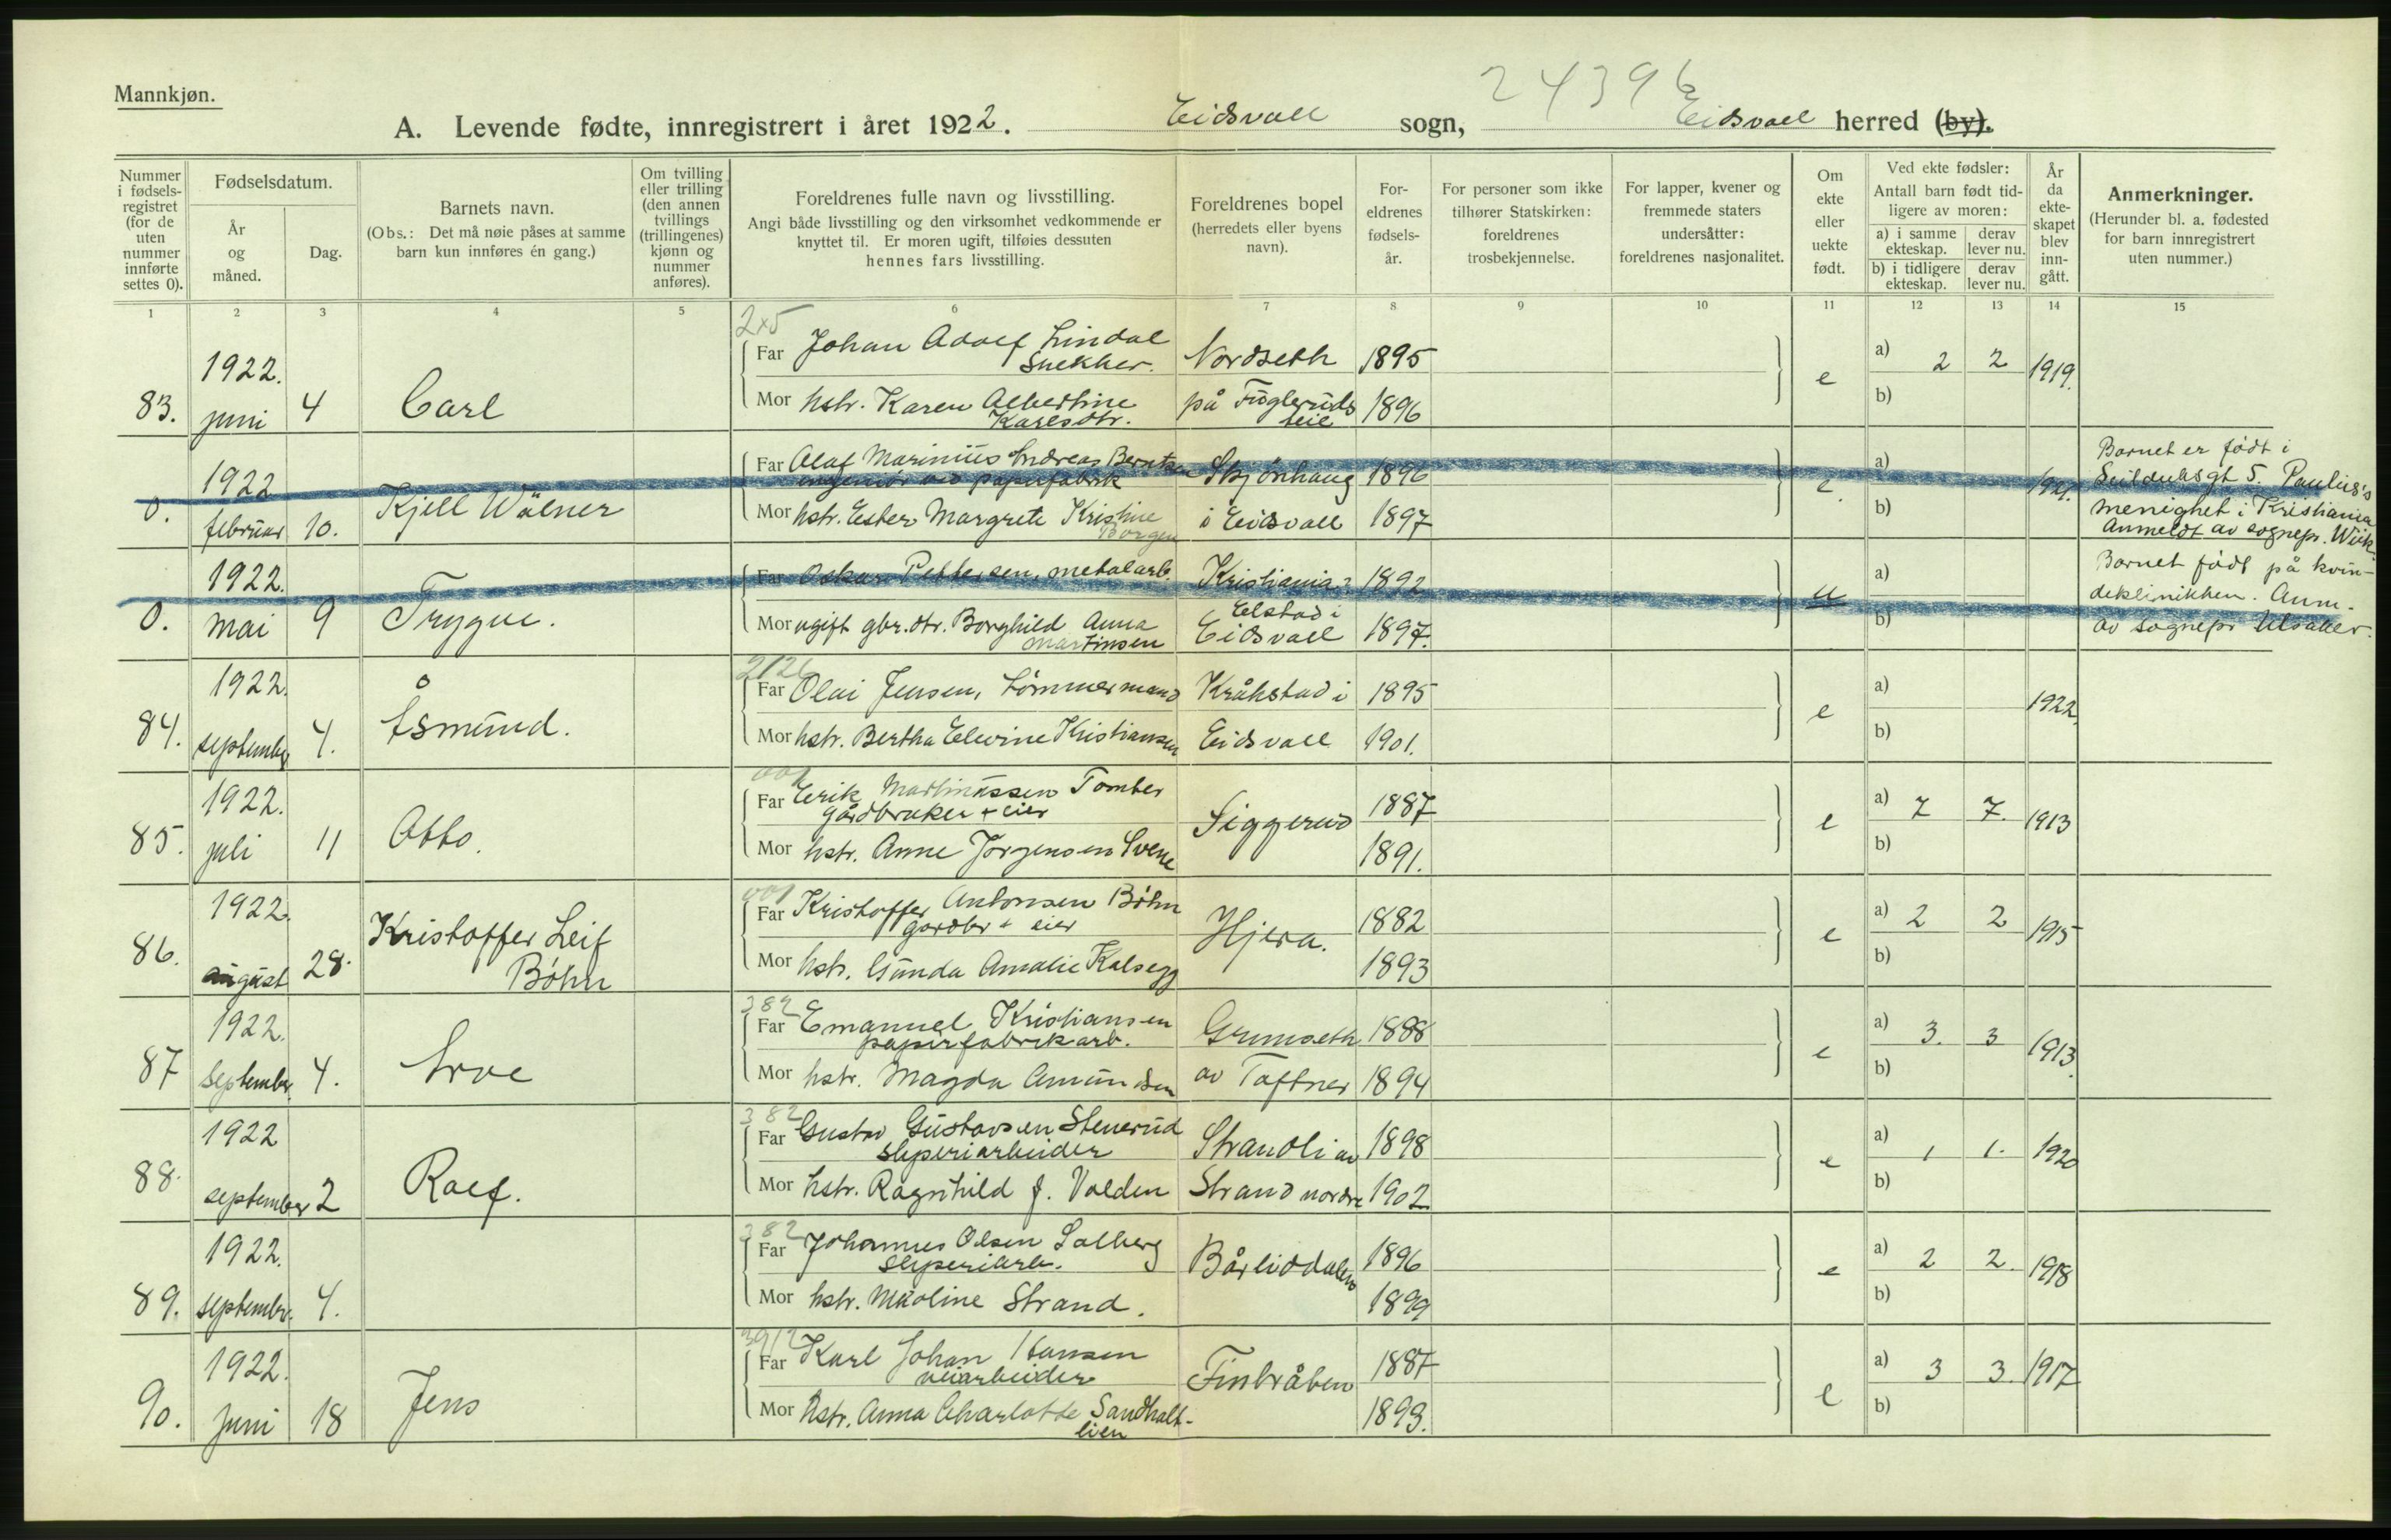 Mannkjøn.
24396
A. Levende fødte, innregistrert i året 1922. Eidsvoll sogn, Eidsvoll herred (by).
Nummer i fødselsregistret (for de uten nummer innførte settes 0).
Fødselsdatum.
År og måned.
Dag.
Barnets navn.
(Obs.: Det må nøie påses at samme barn kun innføres én gang.)
Om tvilling eller trilling (den annen tvillings (trillingenes) kjønn og nummer anføres).
Foreldrenes fulle navn og livsstilling.
Angi både livsstilling og den virksomhet vedkommende er knyttet til. Er moren ugift, tilføies dessuten hennes fars livsstilling.
Foreldrenes bopel (herredets eller byens navn).
Foreldrenes fødselsår.
For personer som ikke tilhører Statskirken: foreldrenes trosbekjennelse.
For lapper, kvener og fremmede staters undersåtter: foreldrenes nasjonalitet.
Om ekte eller uekte født.
Ved ekte fødsler: Antall barn født tidligere av moren:
a) i samme ekteskap. derav lever nu.
b) i tidligere ekteskap. derav lever nu.
År da ekteskapet blev inngått.
Anmerkninger.
(Herunder bl. a. fødested for barn innregistrert uten nummer.)
1 2 3 4 5 6 7 8 9 10 11 12 13 14 15
83. 1922. juni 4 Carl
2x5
Far Johan Adolf Lindal Snekker. Nordseth 1895 e a) 2 2 1919.
Mor hstr. Karen Albertine Karlsdtr. på Fuglerudseie 1896 b)
0. 1922 februar 10. Kjell Wålner
Far Olaf Marinius Andreas Berntsen ingeniør ved papirfabrik Skjönhaug 1896 e. a) 1921.
Mor hstr. Ester Margrete Kristine Borgen i Eidsvoll 1897 b)
Barnet er født i Seilduksgt 5. Paulus's menighet i Kristiania Anmeldt av sognepr. Wiik.
0. 1922. mai 9 Trygve.
Far Oskar Pettersen, metalarb. Kristiania? 1892 u a)
Mor ugift gbr.dtr. Borghild Anna Martinsen Elstad i Eidsvoll 1897. b)
Barnet født på kvindeklinikken. Anm. av sognepr Utsaker.
84. 1922. september 4. Åsmund.
2126
Far Olai Jensen, tömmermand Kråkstad i 1895 e a) 1922.
Mor hstr. Bertha Elevine Kristiansen Eidsvoll 1901. b)
85. 1922. juli 11 Otto.
001
Far Erik Martinussen Tomter gårdbruker + eier Siggerud 1887 e a) 7 7. 1913
Mor hstr. Anne Jørgensen Svene 1891. b)
86. 1922. august 28. Kristoffer Leif Böhn
001
Far Kristoffer Antonsen Böhn gårdbr + eier Hjera. 1882 e a) 2 2 1915
Mor hstr. Gunda Amalie Kalsegg 1893 b)
87 1922. September 4. Arve
382
Far Emanuel Kristiansen papirfabrikarb. Grimseth 1888 e a) 3. 3 1913.
Mor hstr. Magda Amundsen av Toftner 1894 b)
88. 1922 september 2 Rolf.
382
Far Gustav Gustavsen Stenerud sliperiarbeider Strandli av 1898 e a) 1 1. 1920
Mor hstr. Ragnhild f. Volden Strand nordre 1902 b)
89. 1922. septembr. 4.
382
Far Johannes Olsen Solberg sliperiarb. Bårliddalen 1896 e a) 2 2. 1918
Mor hstr. Maoline Strand. 1899 b)
90. 1922. juni 18 Jens
3912
Far Karl Johan Hansen veiarbeider Finbråten 1887 e a) 3 3. 1917
Mor hstr. Anna Charlotte Sandholtlien 1893. b)